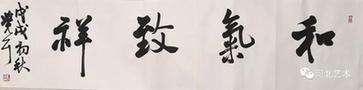 和氣致祥
戊戌初秋
河北艺术